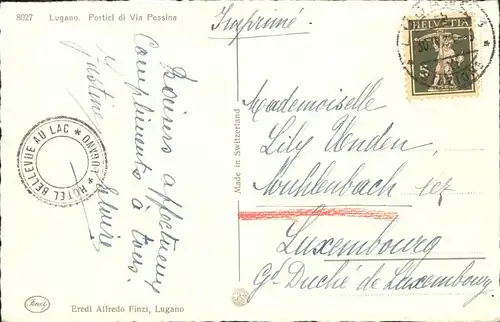 8027 Lugano. Portici di Via Pessina
Imprimé
HELVETIA
5
Baisers affectueux
Compliments à tous.
HOTEL BELLEVUE AU LAC * LUGANO *
Made in Switzerland
Mademoiselle
Lily Unden
Muhlenbach lez
Luxembourg
Gd Duché de Luxembourg
Finzi
Eredi Alfredo Finzi, Lugano